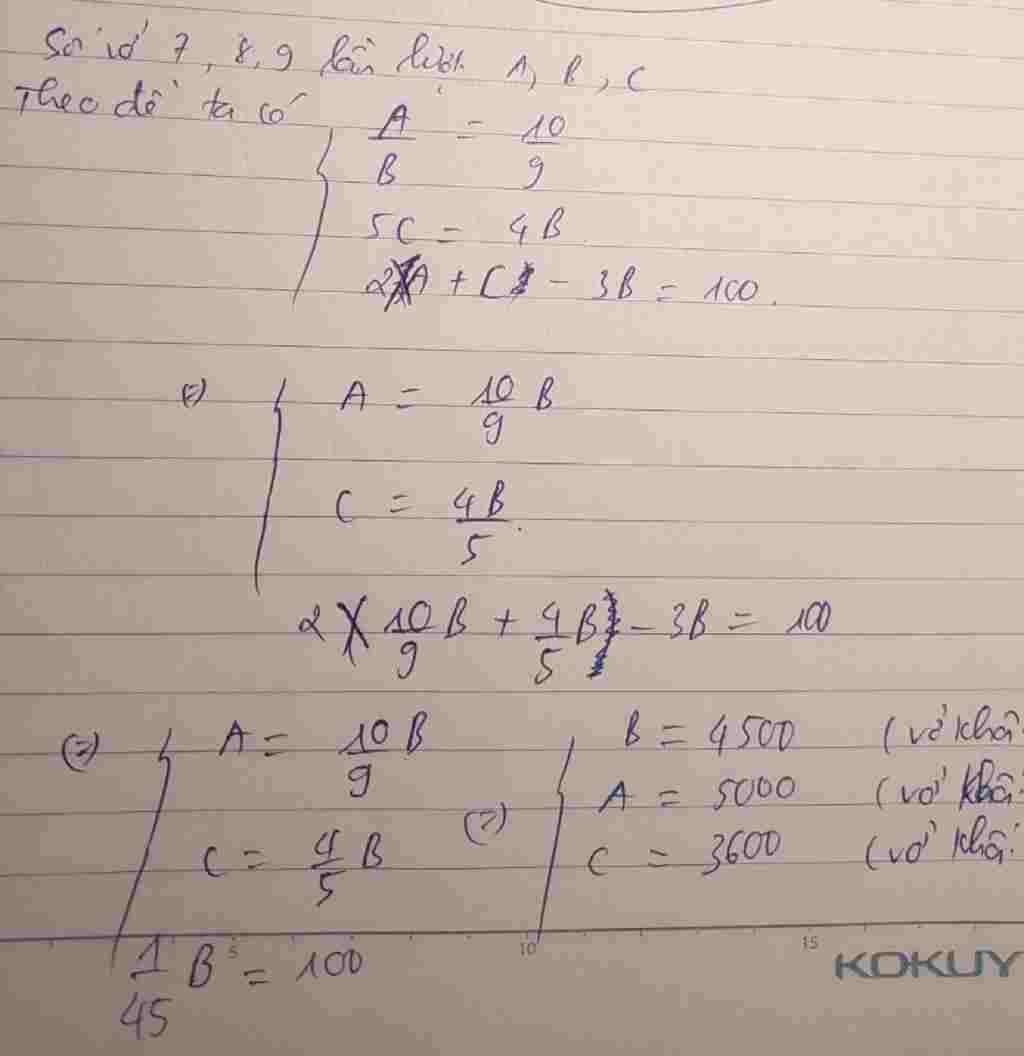 Số vở 7, 8, 9 lần lượt A, B, C
Theo đề ta có
A/B = 10/9
5C = 4B
2A + C - 3B = 100.
A = 10/9 B
C = 4B/5.
2 10/9 B + 4/5 B - 3B = 100
(=) A = 10/9 B
C = 4/5 B
1/45 B = 100
(=) B = 4500 (vở khối
A = 5000 (vở khối
C = 3600 (vở khối
5 10 15
KOKUY